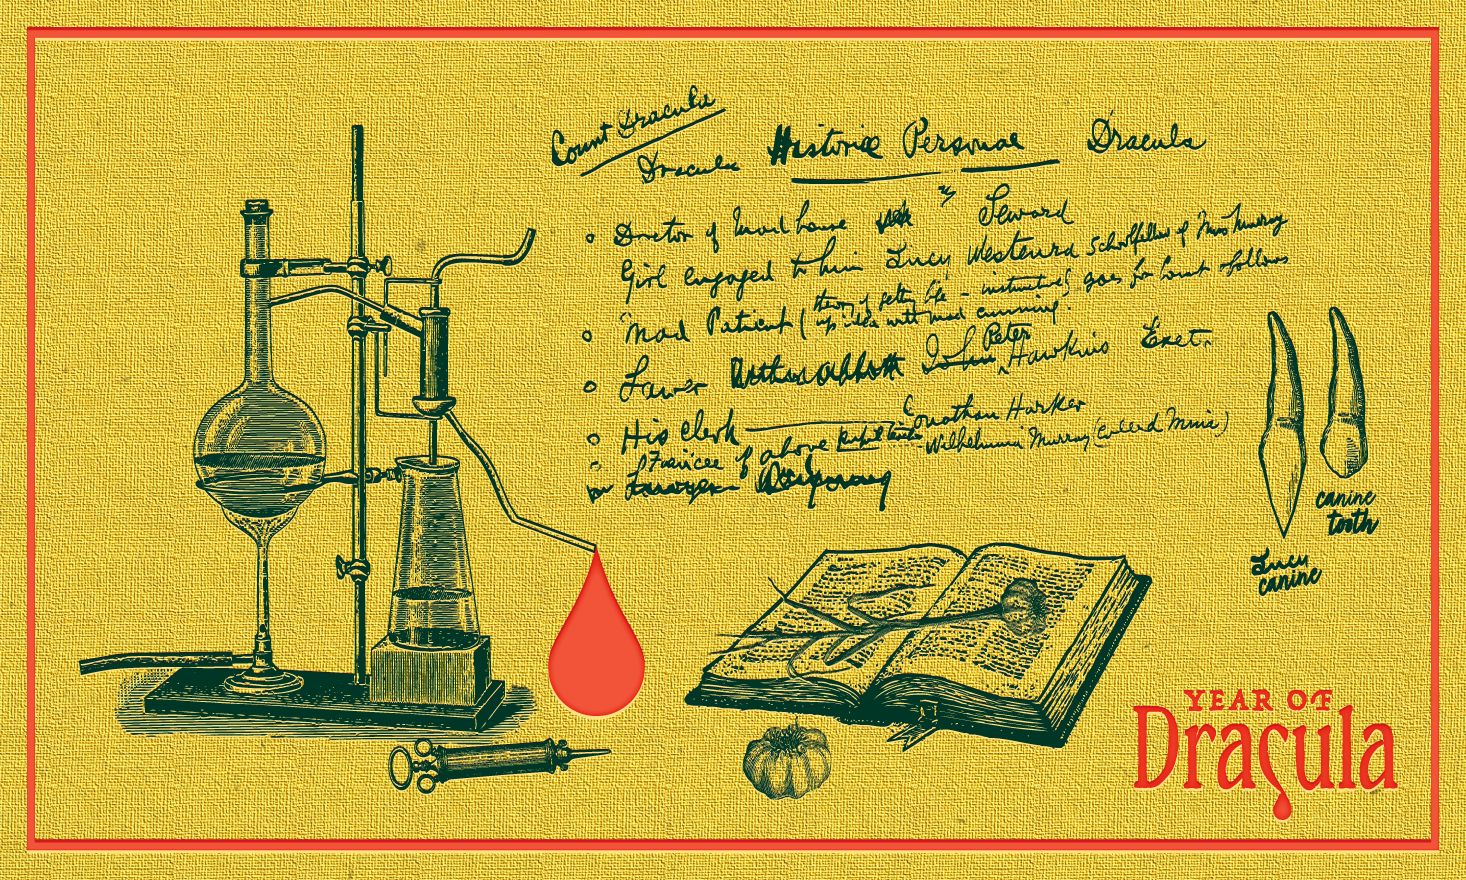 Count Dracula
Dracula Historiæ Personae Dracula
Doctor of mad house Seward
Girl engaged to him Lucy Westenra schoolfellow of Miss Murray
Mad Patient (theory of getting life - instinctively goes for Count & follows
up idea with mad cunning.
Lawyer Arthur Abbott John Peter Hawkins Exeter
His clerk Jonathan Harker
Fiancée of above pupil teacher Wilhelmina Murray (called Mina)
Lawyer
canine
tooth
Lucy
canine
YEAR OF
Dracula